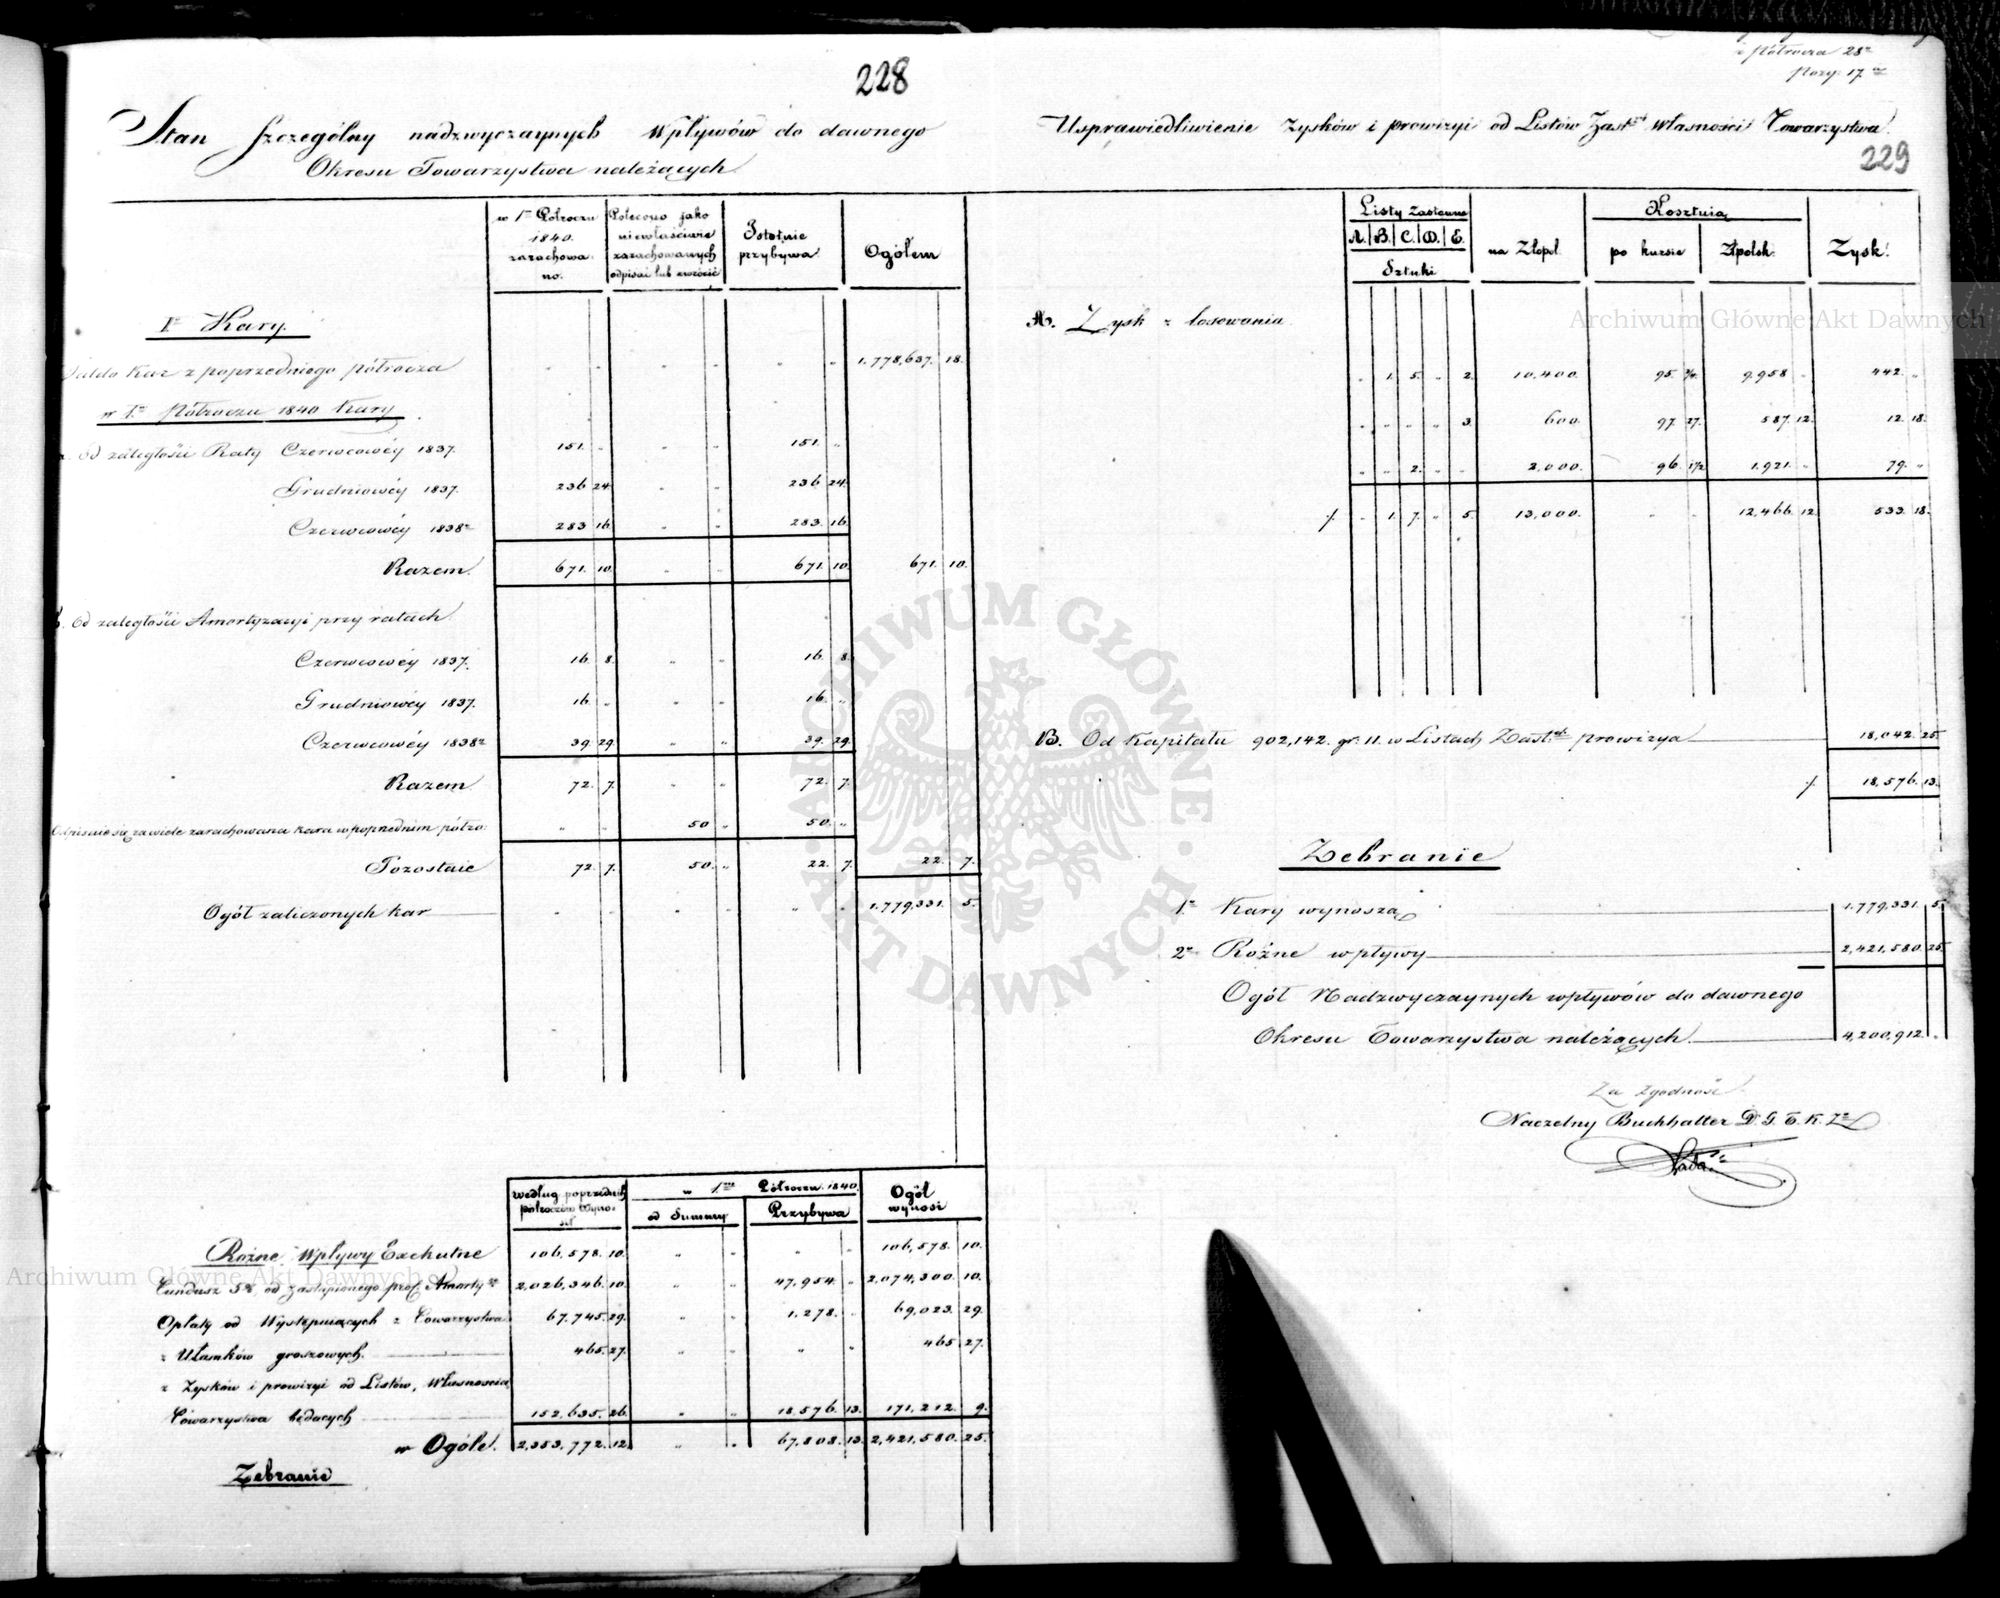 228
Stan Szczególny nadzwyczaynych Wpływów do dawnego
Okresu Towarzystwa należących
w 1m Półroczu 1840. zarachowano. | Polecono jako niewłaściwie zarachowanych odpisać lub zwrócić | Istotnie przybywa | Ogółem
Ie Kary.
Saldo Kar z poprzedniego półrocza " " " " " " 1,778,637. 18.
w 1m Półroczu 1840 Kary
Od zaległości Raty Czerwcowéy 1837. 151. " " " 151. "
Grudniowéy 1837. 236 24. " " 236 24.
Czerwcowéy 1838r 283 16. " " 283. 16.
Razem. 671. 10. " " 671. 10. 671. 10.
Od zaległości Amortyzacyi przy ratach.
Czerwcowéy 1837. 16. 8. " " 16. 8.
Grudniowéy 1837. 16. " " " 16. "
Czerwcowéy 1838r 39. 29. " " 39. 29.
Razem 72. 7. " " 72. 7.
Odpisuie się za wiele zarachowana kara w poprzednim półro: " " 50 " 50. "
Pozostaie 72. 7. 50. " 22. 7. 22. 7.
Ogół zaliczonych kar " " " " " " 1,779,331. 5.
według poprzednich półroczów wynosił | w 1m Półroczu 1840. | Ogół wynosi
od Summy | Przybywa
Rożne Wpływy Exekutne 106,578. 10. " " " " 106,578. 10.
Fundusz 5% od zastąpionego prof. Amorty 2,026,346. 10. " " 47,954. " 2,074,300. 10.
Opłaty od Występuiących z Towarzystwa 67,745. 29. " " 1,278. " 69,023. 29.
z Ułamków groszowych. 465. 27. " " " " 465 27.
z Zysków i prowizyi od Listów, Własnością
Towarzystwa będących 152,635. 26. " " 18,576. 13. 171,212. 9.
w Ogóle. 2,353,772. 12. " " 67,808. 13. 2,421,580. 25.
Zebranie
z Półrocza 28r
Pozy: 17
Usprawiedliwienie Zysków i prowizyi od Listów Zastch Własności Towarzystwa.
229
Listy Zastawne | na Złopol. | Kosztuią | Zysk.
A. B. C. D. E. | po kursie | Złpolsk.
Sztuki
A. Zysk z losowania
" 1. 5. " 2. 10,400. 95. 3/4. 9,958 " 442. "
" " " " 3. 600. 97. 27. 587. 12. 12. 18.
" " 2. " " 2,000. 96. 1/2 1,921. " 79. "
/. " 1. 7. " 5. 13,000. " " 12,466. 12. 533. 18.
B. Od Kapitału 902,142. gr. 11. w Listach Zastch prowizya 18,042. 25.
/. 18,576. 13.
Zebranie
1e Kary wynoszą 1,779,331. 5.
2e Rożne wpływy 2,421,580. 25.
Ogół Nadzwyczaynych wpływów do dawnego
Okresu Towarzystwa należących. 4,200,912. "
Za Zgodność
Naczelny Buchhalter D. G. T. K. Zo
Archiwum Główne Akt Dawnych
Archiwum Główne Akt Dawnych
ARCHIWUM GŁÓWNE · AKT DAWNYCH ·